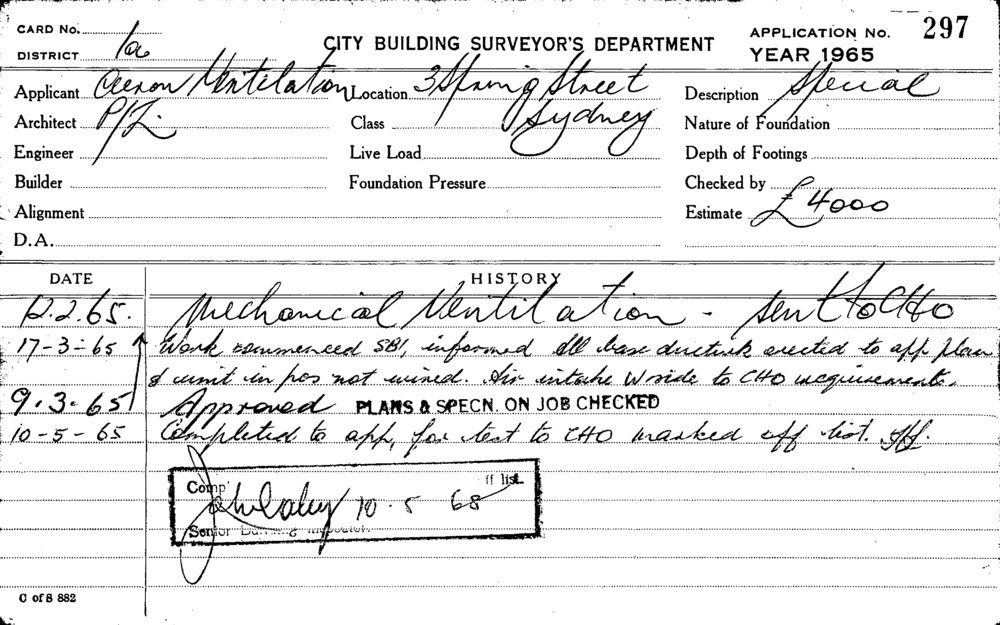 CARD No.
CITY BUILDING SURVEYOR'S DEPARTMENT
APPLICATION No. 297
DISTRICT 1a
YEAR 1965
Applicant Ventilation
P/L.
Location 3 Spring Street
Sydney
Description Special
Architect
Class
Nature of Foundation
Engineer
Live Load
Depth of Footings
Builder
Foundation Pressure
Checked by
Alignment
Estimate £4000
D.A.
DATE HISTORY
12.2.65. Mechanical Ventilation - sent to CHO
17-3-65 Work commenced SBI, informed all base erected to app plan
& unit in pos not wired. Air intake W side to CHO requirements.
9.3.65 Approved PLANS & SPECN. ON JOB CHECKED
10-5-65 Completed to app, for test to CHO marked off list.
Comp' ff list.
10.5 68
Senior
C of S 882